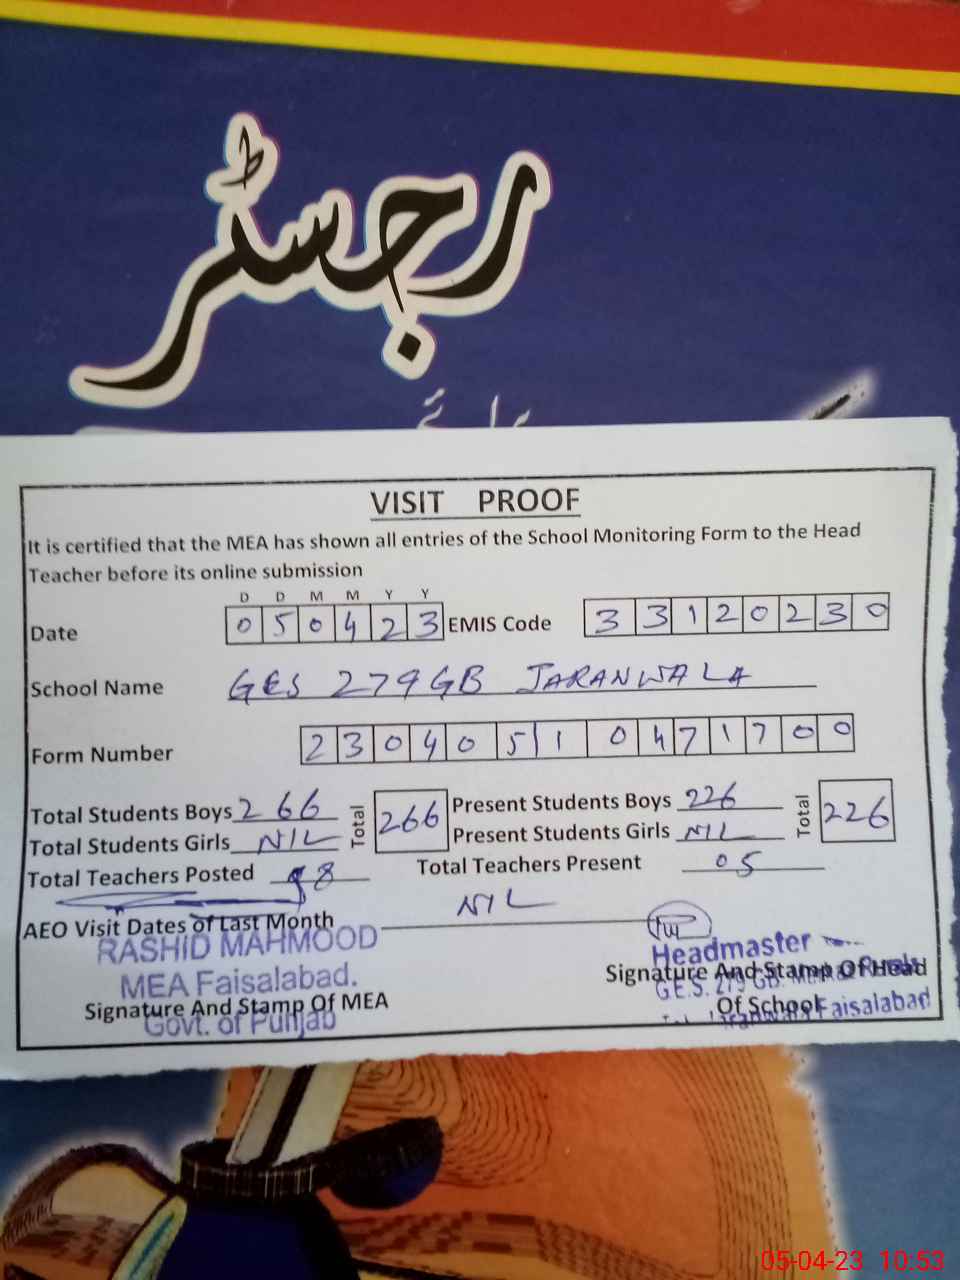 رجسٹر
برائے
VISIT PROOF
It is certified that the MEA has shown all entries of the School Monitoring Form to the Head
Teacher before its online submission
D D M M Y Y
Date 0 5 0 4 2 3 EMIS Code 3 3 1 2 0 2 3 0
School Name GES 279 GB JARANWALA
Form Number 2 3 0 4 0 5 1 0 4 7 1 7 0 0
Total Students Boys 266 Total 266 Present Students Boys 226 Total 226
Total Students Girls NIL Present Students Girls NIL
Total Teachers Posted 8 Total Teachers Present 05
AEO Visit Dates of Last Month NIL
RASHID MAHMOOD
MEA Faisalabad.
Signature And Stamp Of MEA
Govt. of Punjab
Headmaster
Signature And Stamp Of Head
G.E.S. 279 GB.
Of School
Faisalabad
05-04-23 10:53